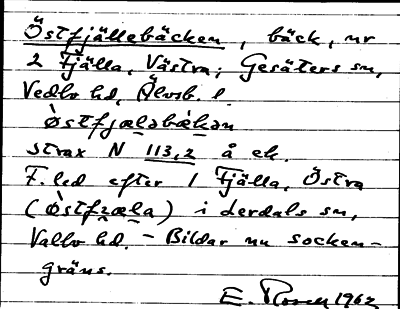 Östfjällebäcken, bäck, nr
2 Fjälla, Västra; Gesäters sn,
Vedbo hd, Älvsb. l.
òstfjæləbækən
strax N 113,2 å ek.
F.led efter 1 Fjälla, Östra
(òstfjæla) i Lerdals sn,
Valbo hd. – Bildar nu socken-
gräns.
E. Rosell 1962